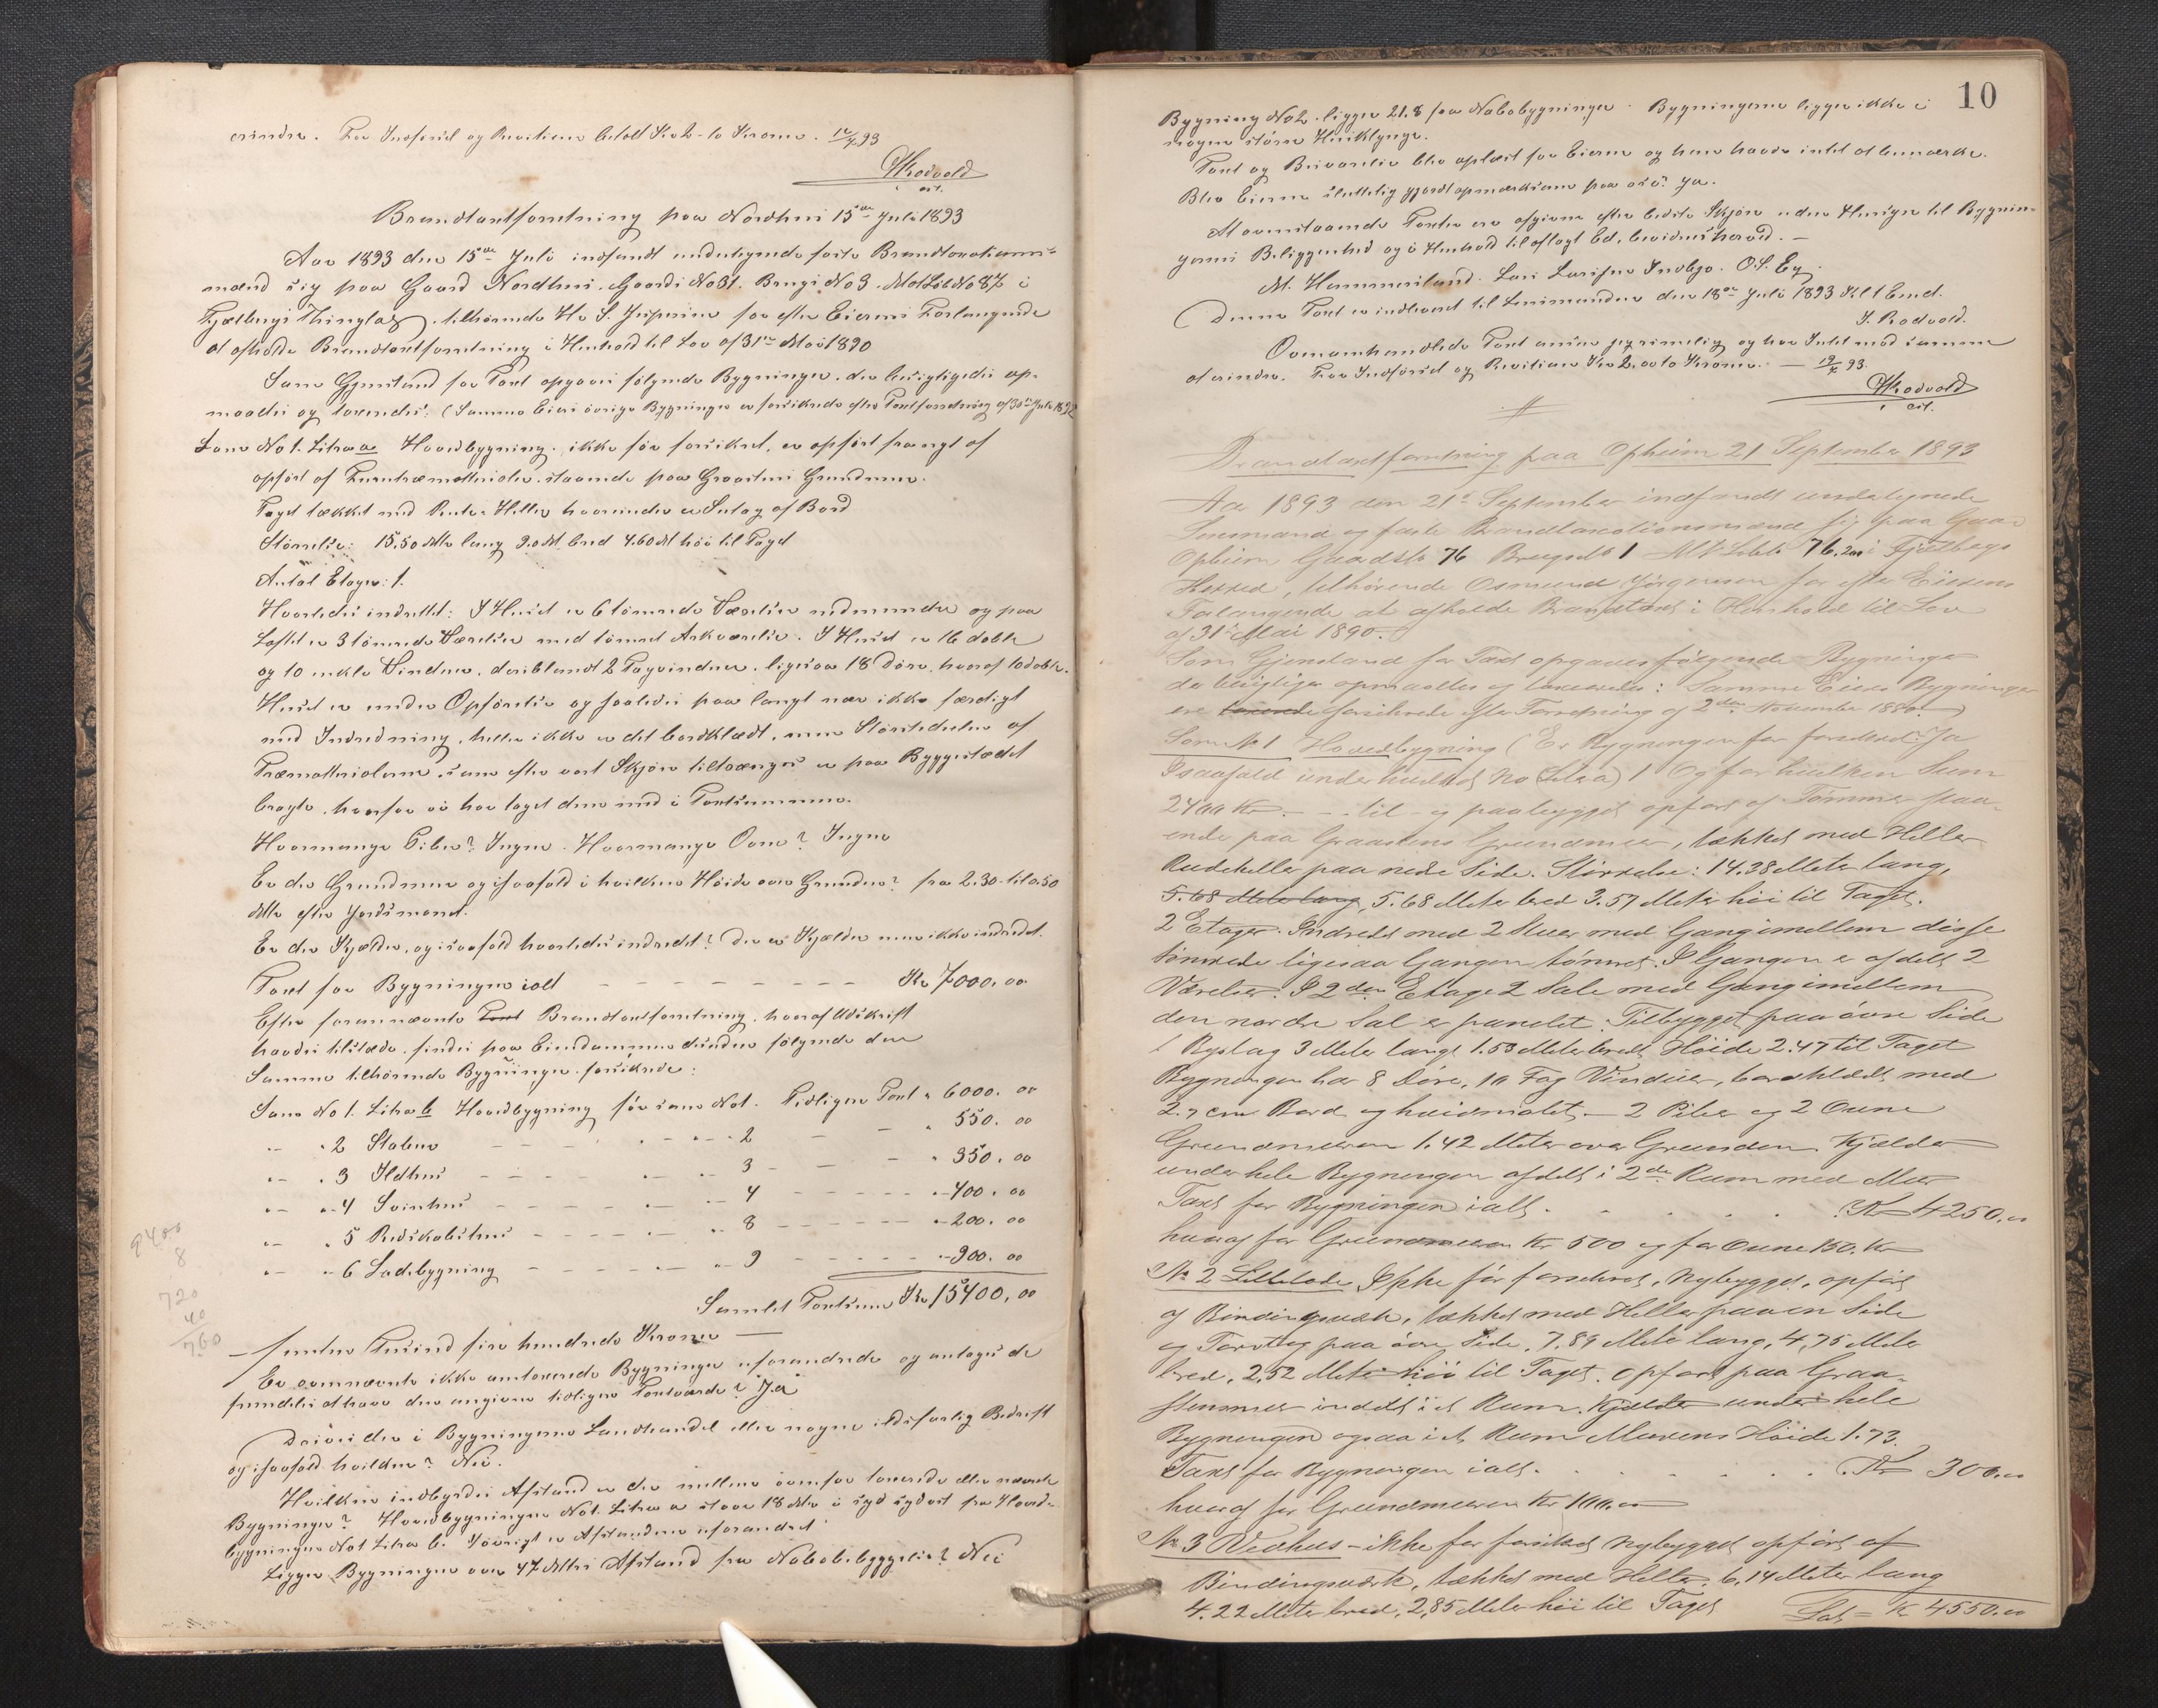 erindre. For Indførsel og Revision betalt Kr 2 - to Kroner. 12/7 93
Rodvold
cst.
Brandtaxtforretning paa Nordhus 15de Juli 1893
Aar 1893 den 15de Juli indfandt undertegnede faste Brandtaxations-
mænd sig paa Gaard Nordhus. Gaards No 31. Brugs No 3. Mat Løb No 87 i
Fjelbergs Thinglag, tilhørende H. S. Jespersen for efter Eierens Forlangende
at afholde Brandtaxtforretning i Henhold til Lov af 31te Mai 1890
Som Gjenstand for Taxt opgaves følgende Bygninger, der besigtigedes op-
maaltes og taxeredes: (Samme Eiers øvrige Bygninger er forsikrede efter Taxtforretning af 30te Juli 1892
Som No 1. Litra a Hovedbygning. ikke før forsikret, er opført fra nyt af
opført af Furutræmatterialer staaende paa Graastens Grundmur.
Taget tækket med Rude-Heller hvorunder er Sutag af Bord
Størrelse: 15.50 Mtr lang 9.0 Mt bred 4.60 Mt høi til Taget
Antal Etager: 1.
Hvorledes indrettet: I Huset er 6 tømrede Værelser nedenunder og paa
Loftet er 3 tømrede Værelser med tømret Arkværelse. I Huset er 16 doble
og 10 enkle Vinduer, deriblandt 2 Tagvinduer. ligesaa 18 Døre, hvoraf 10 doble.
Huset er under Opførelse og saaledes paa langt nær ikke færdigt
med Indredning, heller ikke er det bordklædt, men Størstedelen af
Træmatterialerne, som efter vort Skjøn tiltrænges er paa Byggestedet
bragte, hvorfor vi har taget dem med i Taxtsummen.
Hvormange Piber? Ingen. Hvormange Ovne? Ingen
Er der Grundmur og isaafald i hvilken Høide over Grunden? fra 2.30 til 0.50
Mtr efter Jordsmonet.
Er der Kjælder, og isaafald hvorledes indredet? Der er Kjælder men ikke indredet.
Taxt for Bygningen ialt - - - - - - - - - Kr 7000.00
Efter forannævnte Taxt Brandtaxtforretning, hvoraf Udskrift
havdes tilstede, findes paa Eiendommen desuden følgende den
Samme tilhørende Bygninger forsikrede:
Som No 1. Litra b Hovedbygning før som No 1. Tidligere Taxt " 6000.00
" " 2 Stabur - - - - " - 2 - - " 550.00
" " 3 Ildhus - - - - " - 3 - - " 350.00
" " 4 Svinhus - - - - " - 4 - - - " 400.00
" " 5 Redskabshus - - - - " - 8 - - - " 200.00
" " 6 Ladebygning - - - - " - 9 - - - " 900.00
Samlet Taxtsum Kr 15400.00
9400
8
720
40
760
– femten Tusind fire hundrede Kroner –
Er ovennævnte ikke omtaxerede Bygninger uforandrede og antages de
fremdeles at have den angivne tidligere Taxtværdi? Ja
Drives der i Bygningerne Landhandel eller nogen ildsfarlig Bedrift
og isaafald hvilken? Nei.
Hvilken indbyrdes Afstand er der mellem ovenfor taxerede eller nævnte
Bygninger? Hovedbygningen No 1. Litra a staar 18 Mtr i syd sydost fra Hoved-
bygningen No 1 Litra b. Iøvrigt er Afstandene uforandret.
Ligger Bygningen over 47 Mtrs Afstand fra Nabobebyggelse? Nei
10
Bygning No 2. ligger 21.8 fra Nabobygninger. Bygningerne ligger ikke i
nogen større Husklynge.
Taxt og Beskrivelse blev oplæst for Eieren og han havde intet at bemærke.
Blev Eieren sluttelig gjort opmærksom paa osv? Ja.
At ovenstaaende Taxter ere afgivne efter bedste Skjøn uden Hensyn til Bygnin-
gernes Beliggenhed og i Henhold til aflagt Ed, bevidnes herved. –
M. Hammersland. Lars Larssen Indbjo. O. S. Eg.
Denne Taxt er indleveret til Lensmanden den 18de Juli 1893 Kl 1 Emd.
J. Rodvold.
Ovenomhandlede Taxt ansees rimelig og har Intet mod samme
at erindre. For Indførsel og Revision Kr 2, to Kroner. — 19/7 93.
Rodvold
cst.
Brandtaxtforretning paa Opheim 21 September 1893
Aar 1893 den 21de September indfandt undertegnede
Lensmand og faste Brandtaxationsmænd sig paa Gaar
Opheim Gaards No 76 Brugs No 1 Mt. Løb No 76.2aa i Fjelbergs
Herred, tilhørende Osmund Jørgensen for efter Eierens
Forlangende at afholde Brandtaxt i Henhold til Lov
af 31te Mai 1890.
Som Gjenstand for Taxt opgaves følgende Bygninger
der besigtiges opmaaltes og taxeredes: Samme Eiers Bygninger
ere taxerede forsikrede efter Forretning af 2den November 1880.
Som No 1 Hovedbygning (Er Bygningen før forsikret? Ja
Isaafald under hvilket No (Litra) 1 Og for hvilken Sum
2400 Kr. – – til- og paabygget opført af Tømmer staa-
ende paa Graastens Grundmur, tækket med Heller
Rudeheller paa nedre Side. Størrelse: 14.38 Meter lang,
5.68 Meter lang, 5.68 Meter bred 3.57 Meter høi til Taget.
2 Etager. Indredet med 2 Stuer med Gang imellem disse
tømrede ligesaa Gangen tømret. I Gangen er afdelt 2
Værelser. I 2den Etage 2 Sale med Gang imellem
den nordre Sal er panelet. Tilbygget paa øvre Side
1 Byslag 3 Meter langt 1.50 Meter bredt Høide 2.47 til Taget
Bygningen har 8 Døre, 10 Fag Vinduer, bordklædt med
2.7 cm Bord og hvidmalet – 2 Piber og 2 Ovne
Grundmuren 1.42 Meter over Grunden Kjælder
under hele Bygningen afdelt i 2de Rum med Mur
Taxt for Bygningen ialt . . . . . . Kr 4250.00
hvoraf for Grundmuren Kr 500 og for Ovne 150. Kr
No 2 Lillelade Ikke før forsikret, nybygget, opført
af Bindingsværk, tækket med Heller paa en Side
og Torvtag paa øvre Side, 7,89 Meter lang, 4,75 Meter
bred, 2,52 Meter høi til Taget. Opført paa Graa-
stensmur inddelt i et Rum. Kjælder under hele
Bygningen ogsaa i et Rum Murens Høide 1.73.
Taxt for Bygningen ialt . . . . . . . . Kr 300.00
hvoraf for Grundmuren Kr 100.00
No 3 Vedhus – ikke før forsikret nybygget opført af
Bindingsværk, tækket med Heller. 6,14 Meter lang
4.22 Meter bred, 2,85 Meter høi til Taget Lat = Kr 4550.00